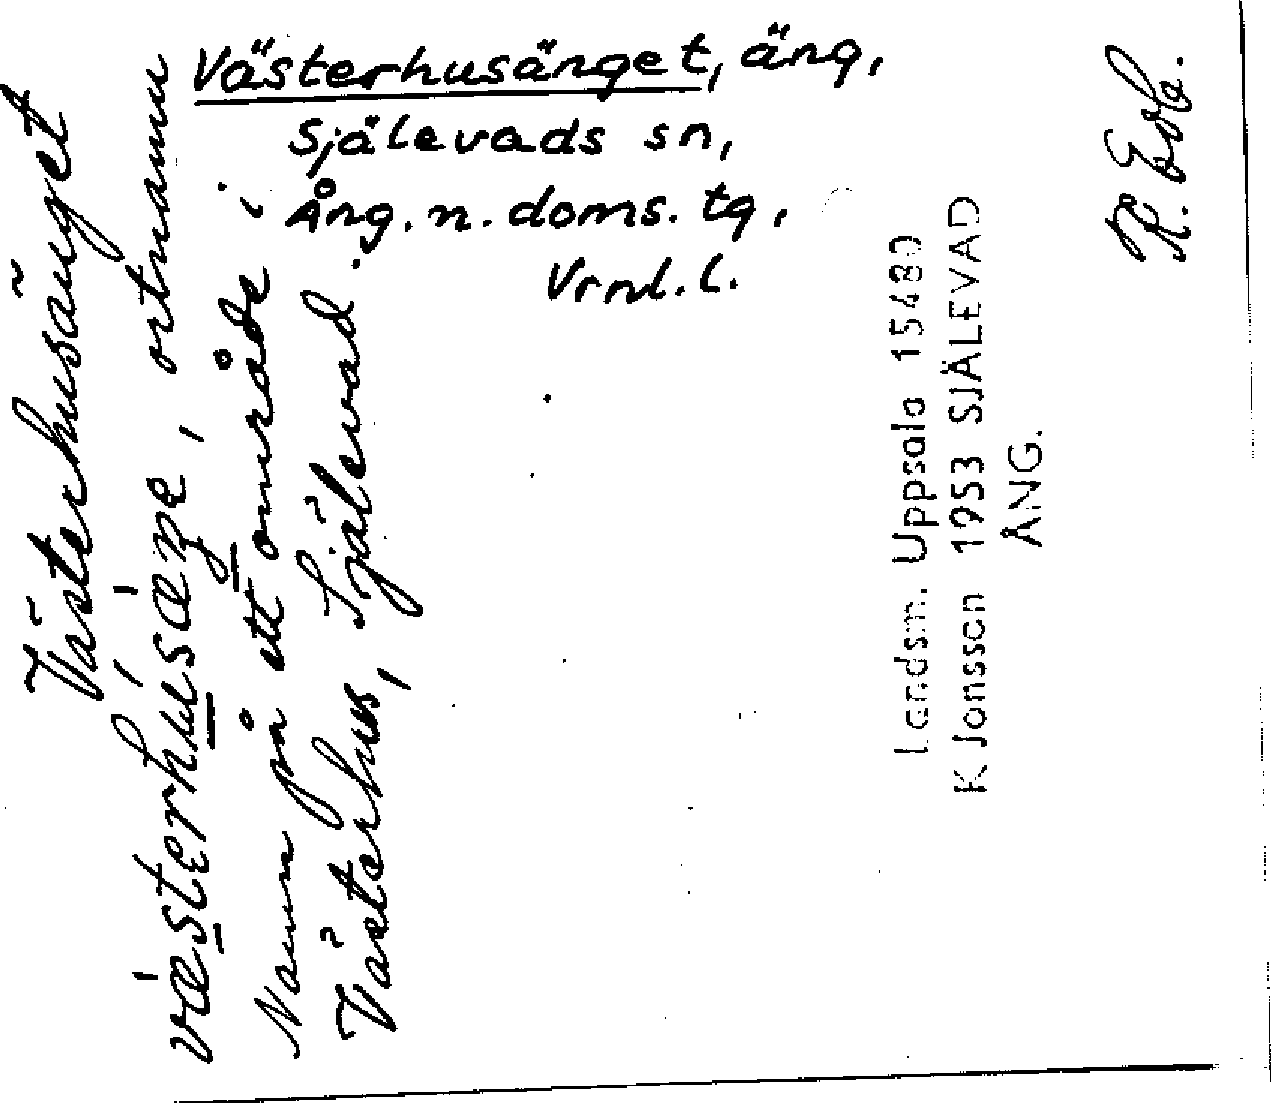 Västerhusänget, äng,
Själevads sn,
Ång. n. doms. tg,
Vrnl. l.
Västerhusänget
væsterhúsæŋe, ortnamn
Namn på ett område i
Västerhus, Själevad.
Landsm. Uppsala 15480
K Jonsson 1953 SJÄLEVAD
ÅNG.